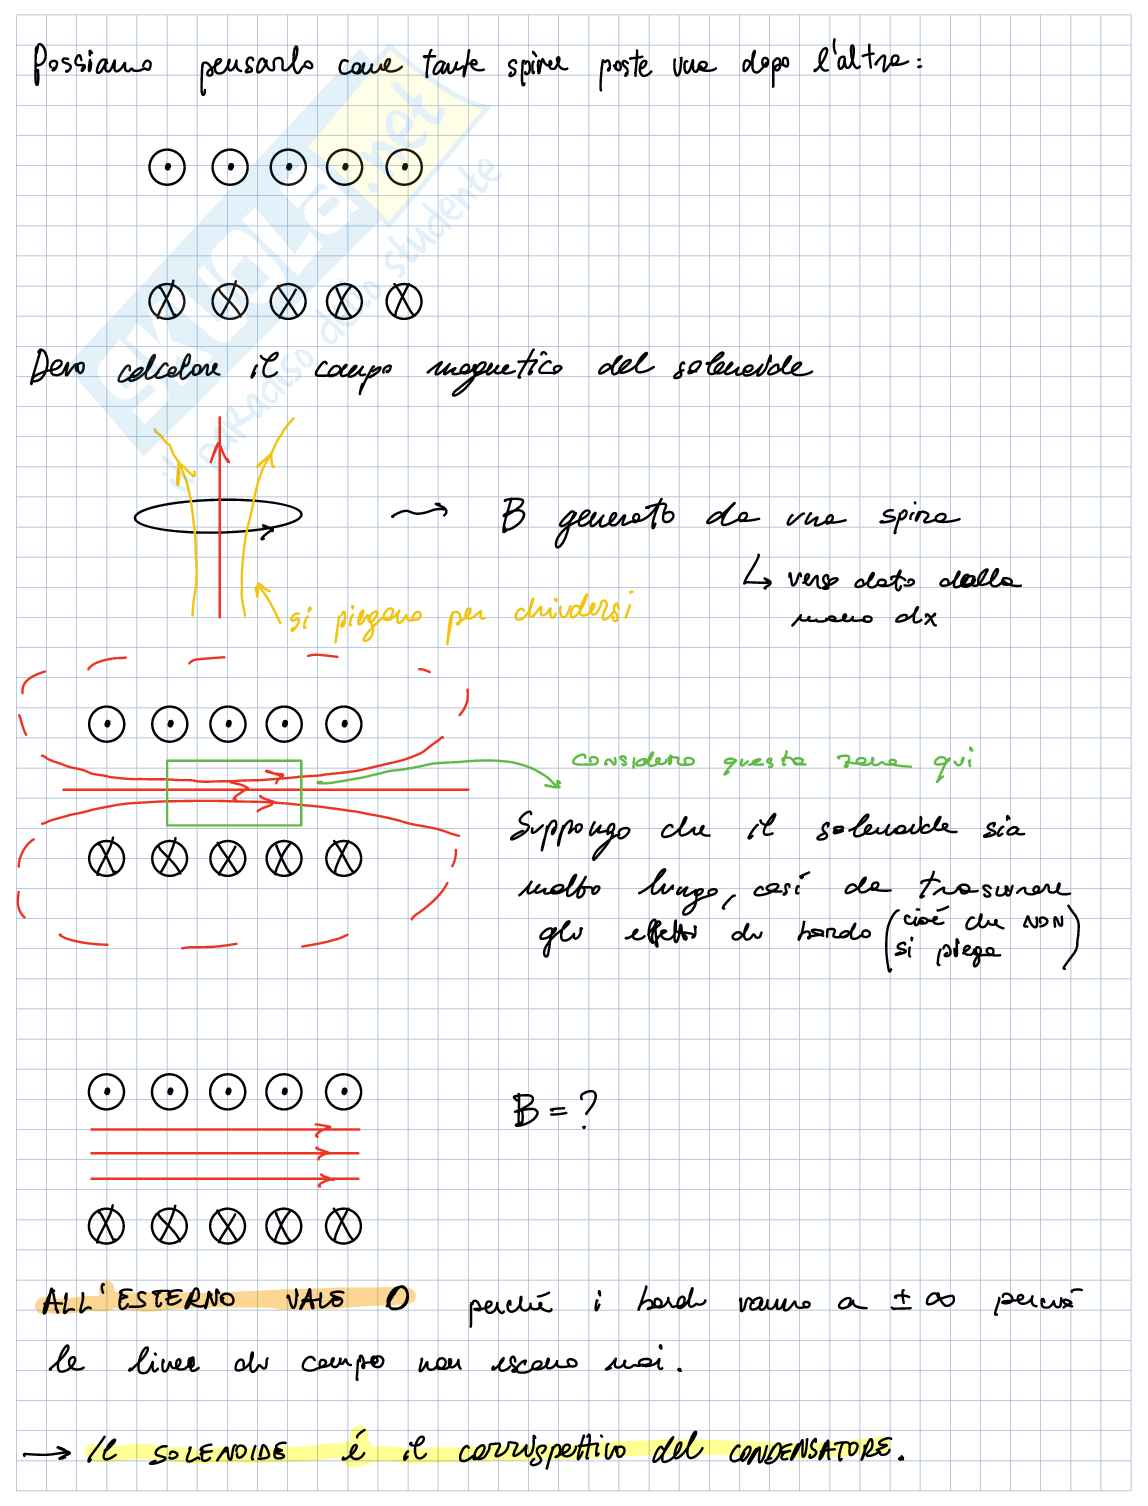 Possiamo pensarlo come tante spire poste una dopo l'altra:
SKUOLA.net
il paradiso dello studente
Devo calcolare il campo magnetico del solenoide
B generato da una spira
↳ verso dato dalla
mano dx
si piegano per chiudersi
considero questa zona qui
Suppongo che il solenoide sia
molto lungo, così da trascurare
gli effetti di bordo (cioè che NON
si piega)
B = ?
ALL'ESTERNO VALE 0 perché i bordi vanno a ± ∞ perciò
le linee di campo non escono mai.
→ Il SOLENOIDE é il corrispettivo del CONDENSATORE.